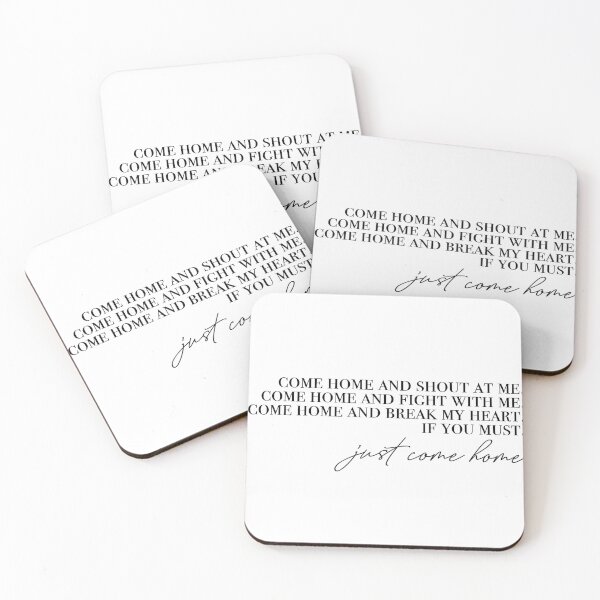 COME HOME AND SHOUT AT ME
COME HOME AND FIGHT WITH
COME HOME MY
IF YOU
home
COME HOME AND SHOUT AT ME
COME HOME AND FIGHT WITH ME
COME HOME AND BREAK MY HEART
IF YOU MUST
just come home
COME HOME AND SHOUT AT ME.
COME HOME AND FIGHT WITH ME
COME HOME AND BREAK MY HEART
IF YOU MUST.
just come
COME HOME AND SHOUT AT ME.
COME HOME AND FIGHT WITH ME.
COME HOME AND BREAK MY HEART.
IF YOU MUST.
just come home